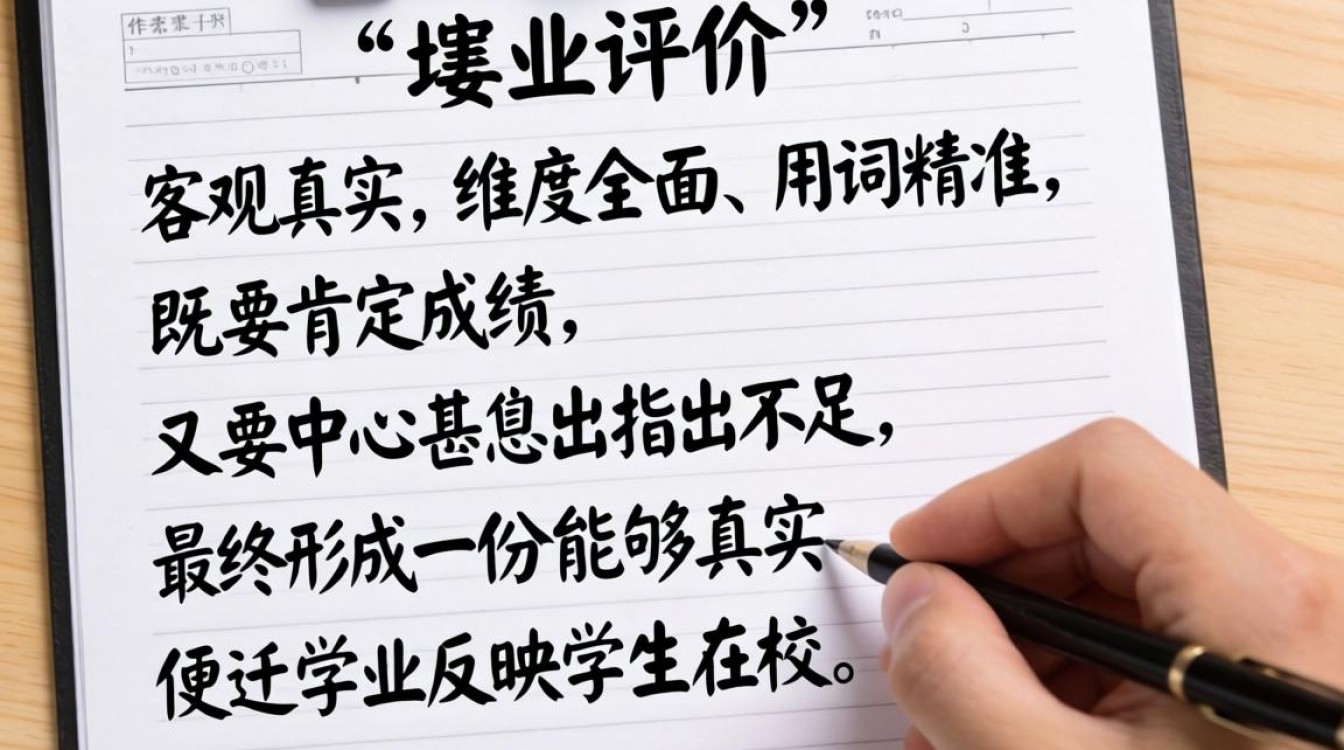 “塿业评价”
客观真实，维度全面、用词精准，
既要肯定成绩，
又要中心甚息出指出不足，
最终形成一份能够真实
便迁学业反映学生在校。